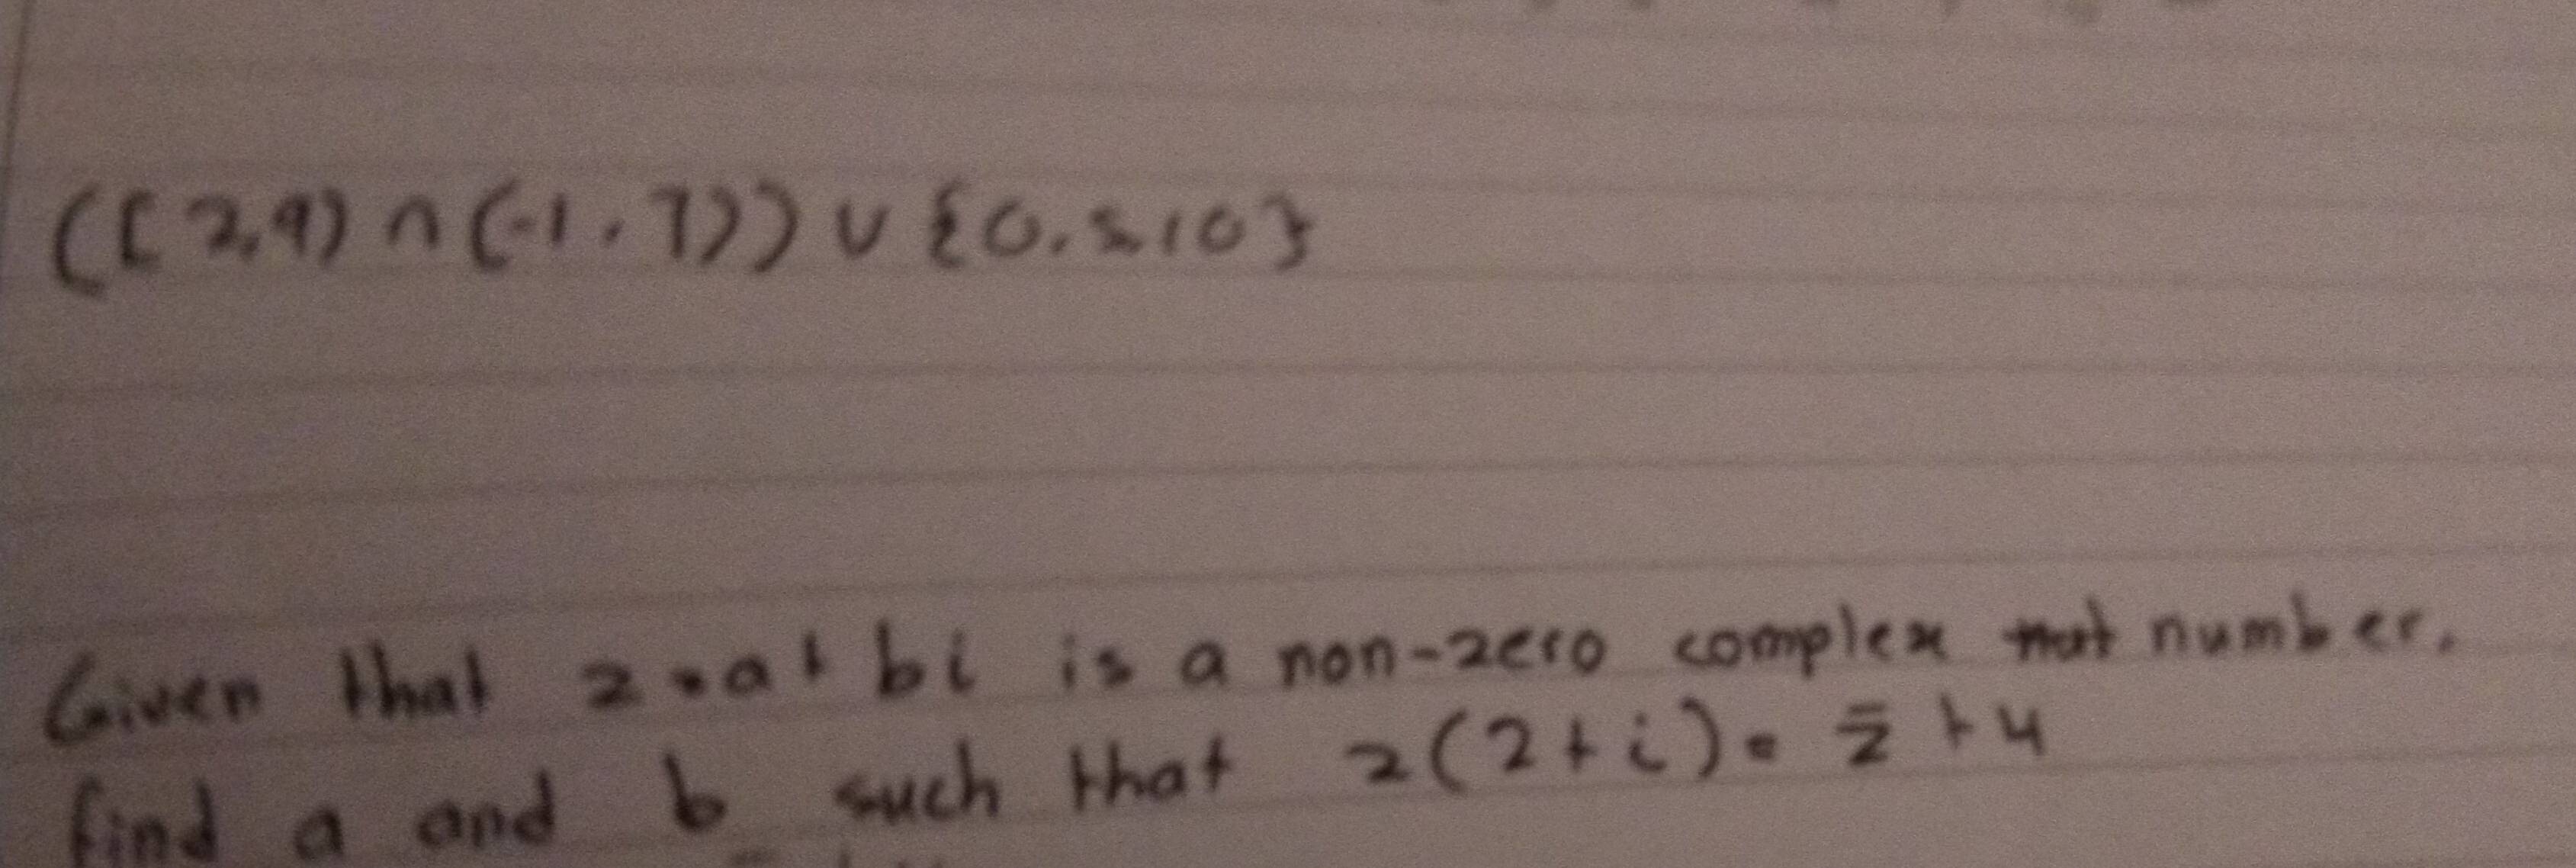 (([2,9) ∩ (-1, 7)) ∪ {0, 5, 10}
Given that z = a + bi is a non-zero complex number.
find a and b such that z(2 + i) = z̄ + 4